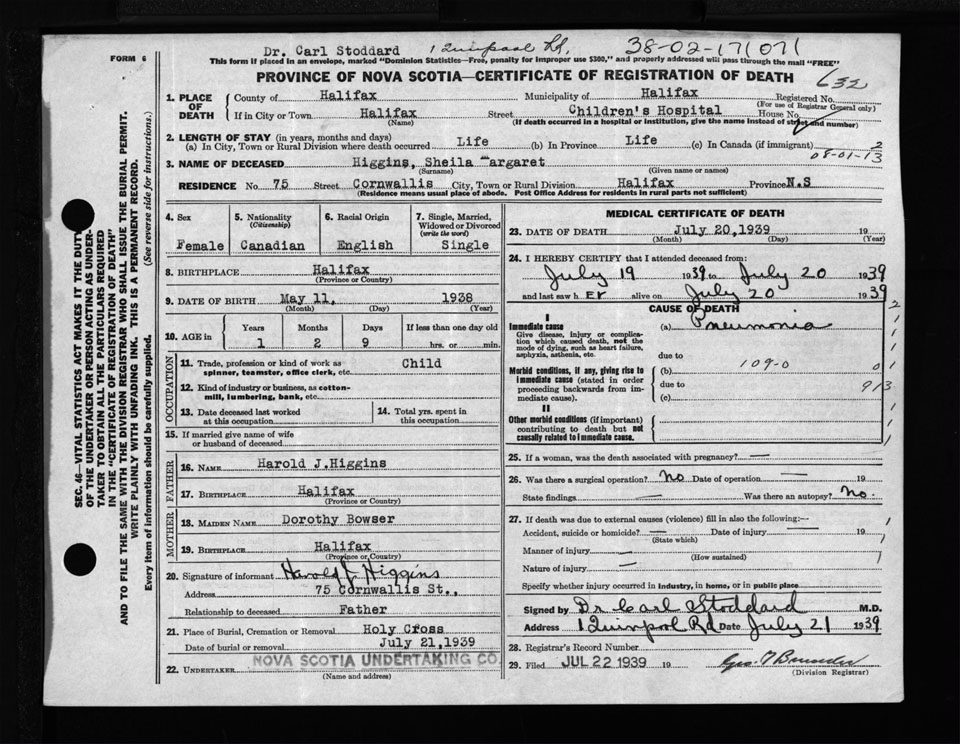 Dr. Carl Stoddard 1 Quinpool Rd, 38-02-171071
FORM 6 This form if placed in an envelope, marked "Dominion Statistics—Free, penalty for improper use $300," and properly addressed will pass through the mail "FREE"
PROVINCE OF NOVA SCOTIA—CERTIFICATE OF REGISTRATION OF DEATH
632
1. PLACE OF DEATH
County of Halifax Municipality of Halifax Registered No.
(For use of Registrar General only)
If in City or Town Halifax Street Children's Hospital House No.
(Name) (If death occurred in a hospital or institution, give the name instead of street and number)
2. LENGTH OF STAY (in years, months and days)
(a) In City, Town or Rural Division where death occurred Life (b) In Province Life (c) In Canada (if immigrant) 2
08-01-13
3. NAME OF DECEASED Higgins, Sheila Margaret
(Surname) (Given name or names)
RESIDENCE No. 75 Street Cornwallis City, Town or Rural Division Halifax Province N.S
(Residence means usual place of abode. Post Office Address for residents in rural parts not sufficient)
4. Sex
Female
5. Nationality
(Citizenship)
Canadian
6. Racial Origin
English
7. Single, Married, Widowed or Divorced
(write the word)
Single
8. BIRTHPLACE Halifax
(Province or Country)
9. DATE OF BIRTH May 11, 1938
(Month) (Day) (Year)
10. AGE in
Years Months Days If less than one day old
1 2 9 hrs. or min.
OCCUPATION
11. Trade, profession or kind of work as Child
spinner, teamster, office clerk, etc.
12. Kind of industry or business, as cotton-
mill, lumbering, bank, etc.
13. Date deceased last worked
at this occupation
14. Total yrs. spent in
this occupation
15. If married give name of wife
or husband of deceased
FATHER
16. NAME Harold J.Higgins
17. BIRTHPLACE Halifax
(Province or Country)
MOTHER
18. MAIDEN NAME Dorothy Bowser
19. BIRTHPLACE Halifax
(Province or Country)
20. Signature of informant Harold J. Higgins
Address 75 Cornwallis St.,
Relationship to deceased Father
21. Place of Burial, Cremation or Removal Holy Cross
Date of burial or removal July 21,1939
22. UNDERTAKER NOVA SCOTIA UNDERTAKING CO.
(Name and address)
MEDICAL CERTIFICATE OF DEATH
23. DATE OF DEATH July 20,1939 19
(Month) (Day) (Year)
24. I HEREBY CERTIFY that I attended deceased from:
July 19 1939 to July 20 1939
and last saw h er alive on July 20 1939
CAUSE OF DEATH
I
Immediate cause (a) Pneumonia
Give disease, injury or complica-
tion which caused death, not the
mode of dying, such as heart failure,
asphyxia, asthenia, etc.
due to
Morbid conditions, if any, giving rise to (b) 109-0 01
immediate cause (stated in order due to 913
proceeding backwards from im- (c)
mediate cause).
II
Other morbid conditions (if important)
contributing to death but not
causally related to immediate cause.
25. If a woman, was the death associated with pregnancy? —
26. Was there a surgical operation? No Date of operation — 19
State findings — Was there an autopsy? No.
27. If death was due to external causes (violence) fill in also the following:—
Accident, suicide or homicide? — Date of injury — 19
(State which)
Manner of injury —
(How sustained)
Nature of injury —
Specify whether injury occurred in industry, in home, or in public place
Signed by Dr Carl Stoddard M.D.
Address 1 Quinpool Rd Date July 21 1939
28. Registrar's Record Number
29. Filed JUL 22 1939 19
(Division Registrar)
SEC. 46—VITAL STATISTICS ACT MAKES IT THE DUTY
OF THE UNDERTAKER OR PERSON ACTING AS UNDER-
TAKER TO OBTAIN ALL THE PARTICULARS REQUIRED
IN THE "CERTIFICATE OF REGISTRATION OF DEATH"
AND TO FILE THE SAME WITH THE DIVISION REGISTRAR WHO SHALL ISSUE THE BURIAL PERMIT.
WRITE PLAINLY WITH UNFADING INK. THIS IS A PERMANENT RECORD.
Every item of information should be carefully supplied. (See reverse side for instructions.)